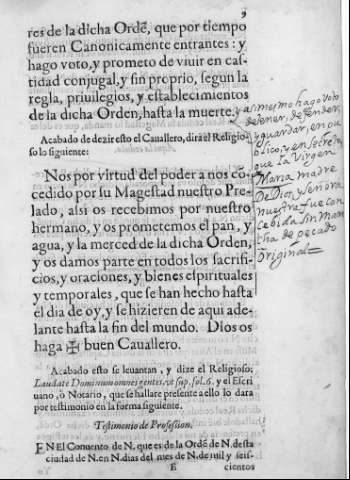 9
res de la dicha Ordẽ, que por tiempo
fueren Canonicamente entrantes: y
hago voto, y prometo de viuir en cas-
tidad conjugal, y sin proprio, segun la
regla, priuilegios, y establecimientos
de la dicha Orden, hasta la muerte.
Acabado de dezir esto el Cauallero, dirá el Religio-
so lo siguiente:
Nos por virtud del poder a nos cõ-
cedido por su Magestad nuestro Pre-
lado, assi os recebimos por nuestro
hermano, y os prometemos el pan, y
agua, y la merced de la dicha Orden,
y os damos parte en todos los sacrifi-
cios, y oraciones, y bienes espirituales
y temporales, que se han hecho hasta
el dia de oy, y se hizieren de aqui ade-
lante hasta la fin del mundo. Dios os
haga ✠ buen Cauallero.
Acabado esto se leuantan, y dize el Religioso;
Laudate Dominum omnes gentes. vt sup. fol. 6. y el Escri
uano, ò Notario, que se hallare presente a ello lo dara
por testimonio en la forma siguiente.
Testimonio de Profession.
EN El Conuento de N. que es de la Ordẽ de N. desta
ciudad de N. en N. dias del mes de N. de mil y seis-
E cientos
y asimesmo hago voto
de tener, defender,
y guardar, en pu
blico, y en secreto
que la Virgen
Maria madre
de Dios y señora
nuestra fue con
cebida sin man
cha de pecado
original=